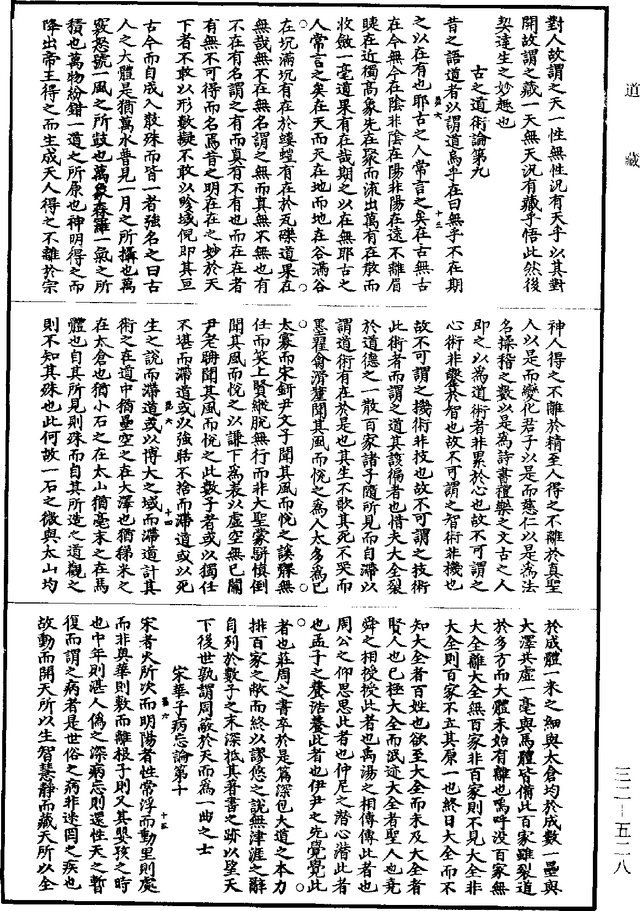 道藏
對人故謂之天一性無性況有天乎以其對
開故謂之藏一天無天況有藏乎悟此然後
契達生之妙趣也
古之道術論第九
昔之語道者以謂道烏乎在曰無乎不在期
之以在有也耶古之人常言之矣在古無古
在今無今在陰非陰在陽非陽在遠不離眉
睫在近獨高象先在聚而流出萬有在散而
收斂一毫道果有在哉期之以在無耶古之
人常言之矣在天而天在地而地在谷滿谷
在坑滿坑有在於螻蟻有在於瓦礫道果在
無哉無不在無名謂之無而真無不無也有
不在有名謂之有而真有不有也而在在者
有無不可得而名焉昔之明在在之妙於天
下者不敢以形數擬不敢以畛域倪即其亙
古今而自成入散殊而皆一者強名之曰古
人之大體是猶萬水普見一月之所攝也萬
竅怒號一風之所鼓也萬象森羅一氣之所
積也萬物紛錯一道之所原也神明得之而
降出帝王得之而生成天人得之不離於宗
神人得之不離於精至人得之不離於真聖
人以是而變化君子以是而慈仁以是為法
名操稽之數以是為詩書禮樂之文古之人
即之以為道術者非累於心也故不可謂之
心術非鑿於智也故不可謂之智術非機也
故不可謂之機術非技也故不可謂之技術
此術者而謂之道其該徧者也惜夫大全裂
於道德之一散百家諸子隨所見而自滯以
謂道術有在於是也其生不歌其死不哭而
墨翟禽滑釐聞其風而悅之為人太多為己
太寡而宋鈃尹文子聞其風而悅之謑髁無
任而笑上賢縱脫無行而非大聖慕骿慎到
聞其風而悅之以謙下為表以虛空無已關
尹老聃聞其風而悅之此數子者或以獨任
不堪而滯道或以強聒不捨而滯道或以死
生之說而滯道或以博大之域而滯道計其
術之在道中猶壘空之在大澤也猶稊米之
在太倉也猶小石之在太山猶毫末之在馬
體也自其所見則殊而自其所造之道觀之
則不知其殊也此何故一石之微與太山均
於成體一米之細與太倉均於成數一壘與
大澤共虛一毫與馬體皆備此百家雖裂道
於多方而大體未始有離也嗚呼沒百家無
大全離大全無百家非百家則不見大全非
大全則百家不立其原一也終日大全而不
知大全者百姓也欲至大全而未及大全者
賢人也已極大全而泯迹大全者聖人也堯
舜之相授授此者也禹湯之相傳傳此者也
周公之仰思思此者也仲尼之潛心潛此者
也孟子之養浩養此者也伊尹之先覺覺此
者也莊周之書卒於是篇深包大道之本力
排百家之敝而終以謬悠之說無津涯之辭
自列於數子之末深抵其著書之跡以聖天
下後世孰謂周蔽於天而為一曲之士
宋華子病忘論第十
宋者火所次而明陽者性常浮而動里則處
而非奧華則敷而離根子則又其嬰孩之時
也中年則湛人偽之深病忘則還性天之暫
復而謂之病者是世俗之病非迷罔之疾也
故動而開天所以生智慧靜而藏天所以全
三二—五二八